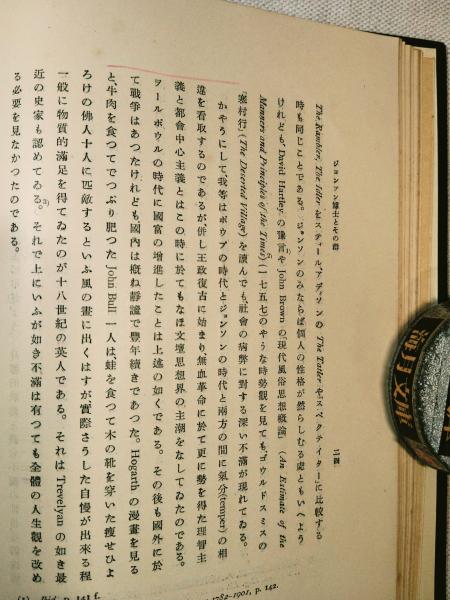 ジョンソン博士とその群
二四
The Rambler, The Idler をスティール、アディソンの The Tatler や「スペクテイター」に比較する
時も同じことである。ジョンソンのみならば個人の性格が然らしむる處ともいへよう
けれども、David Hartley の豫言や John Brown の「現代風俗思想概論」(An Estimate of the
Manners and Principles of the Times) (一七五七)のやうな時勢觀を見ても、ゴウルドスミスの
「寒村行」(The Deserted Village) を讀んでも、社會の病弊に對する深い不滿が現れてゐる。
かやうにして、我等はポウプの時代とジョンソンの時代と兩方の間に氣分(temper)の相
違を看取するのであるが、併し王政復古に始まり、無血革命に於て更に勢を得た理智主
義と都會中心主義とはこの時に於てもなほ文壇思想界の主潮をなしてゐたのである。
ヲールポウルの時代に國富の增進したことは上述の如くである。その後も國外に於
て戰爭はあつたけれども國內は槪ね靜謐で豐年續きであつた。Hogarth の漫畫を見る
と、牛肉を食つてでつぷり肥つた John Bull 一人は、蛙を食つて木の靴を穿いた瘦せひよ
ろけの佛人十人に匹敵するといふ風の畫に出くはすが、實際さうした自慢が出來る程
一般に物質的滿足を得てゐたのが十八世紀の英人である。それは Trevelyan の如き最
近の史家も認めてゐる。それで上にいふが如き不滿は有つても全體の人生觀を改め
る必要を見なかつたのである。
p. 141 f.
1782-1901, p. 142.